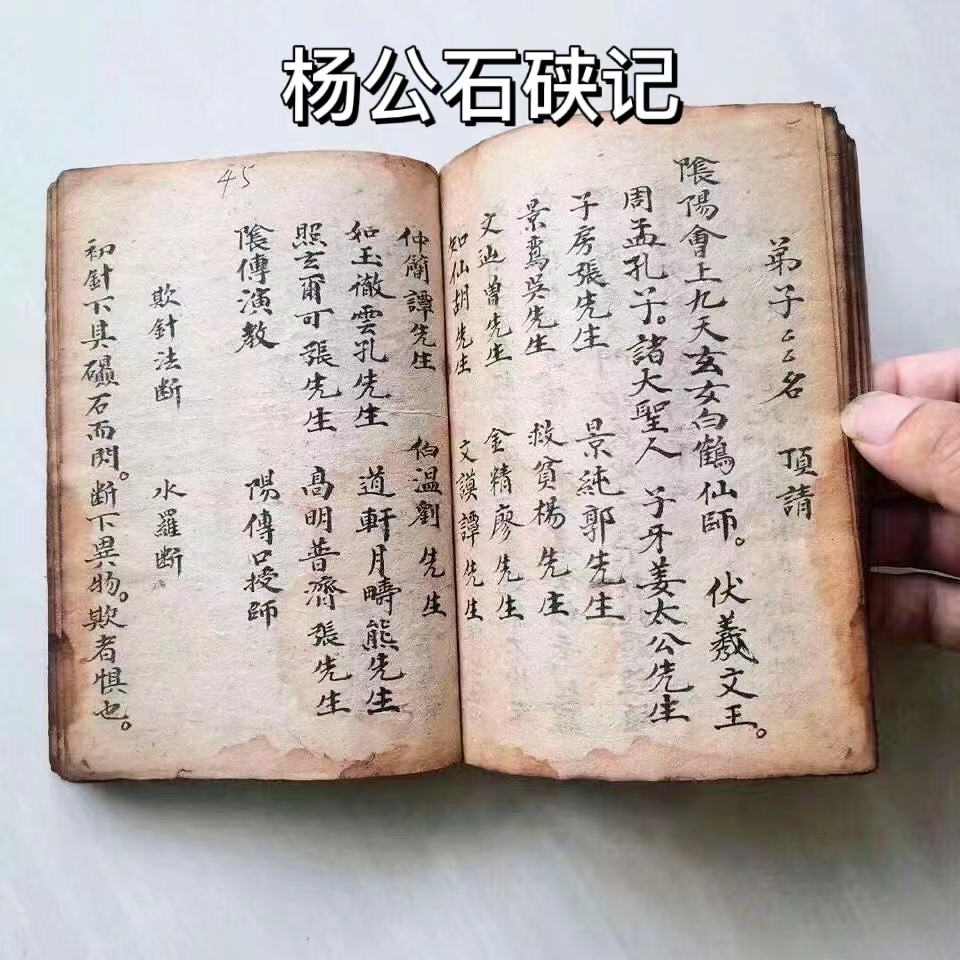 杨公石硖记
弟子〻〻名　頂請
陰陽會上九天玄女白鶴仙師。伏羲文王。
周孟孔子。諸大聖人　子牙姜太公先生
子房張先生　景純郭先生
景鸞吳先生　救貧楊先生
文辿曾先生　金精廖先生
知仙胡先生　文謨譚先生
45
仲簡譚先生　伯温劉先生
如玉徹雲孔先生　道軒月疇熊先生
照玄爾可張先生　高明普濟張先生
陰傳演教　陽傳口授師
欺針法斷　水羅斷
初針下具礦石而閃。断下異物。欺者惧也。